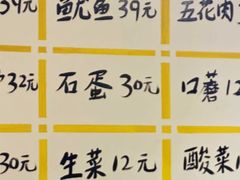 39元 鱿鱼39元 五花肉3
32元 石蛋30元 口蘑12
30元 生菜12元 酸菜1